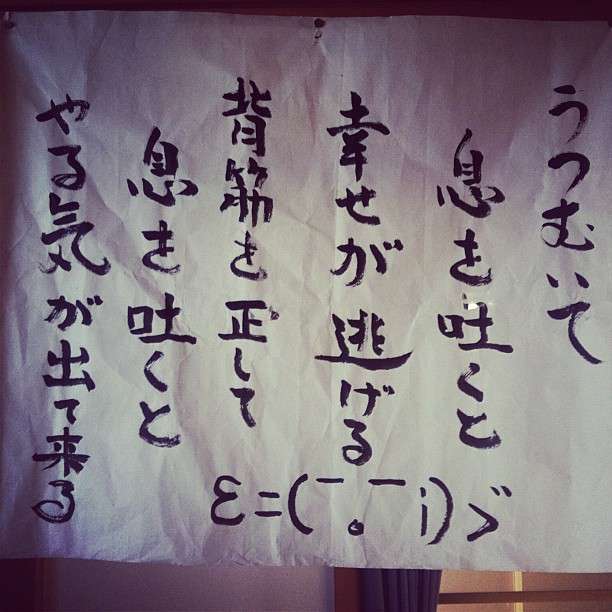 うつむいて
息を吐くと
幸せが逃げる
背筋を正して
息を吐くと
やる気が出て来る
ε=(‾｡‾ i)ゞ